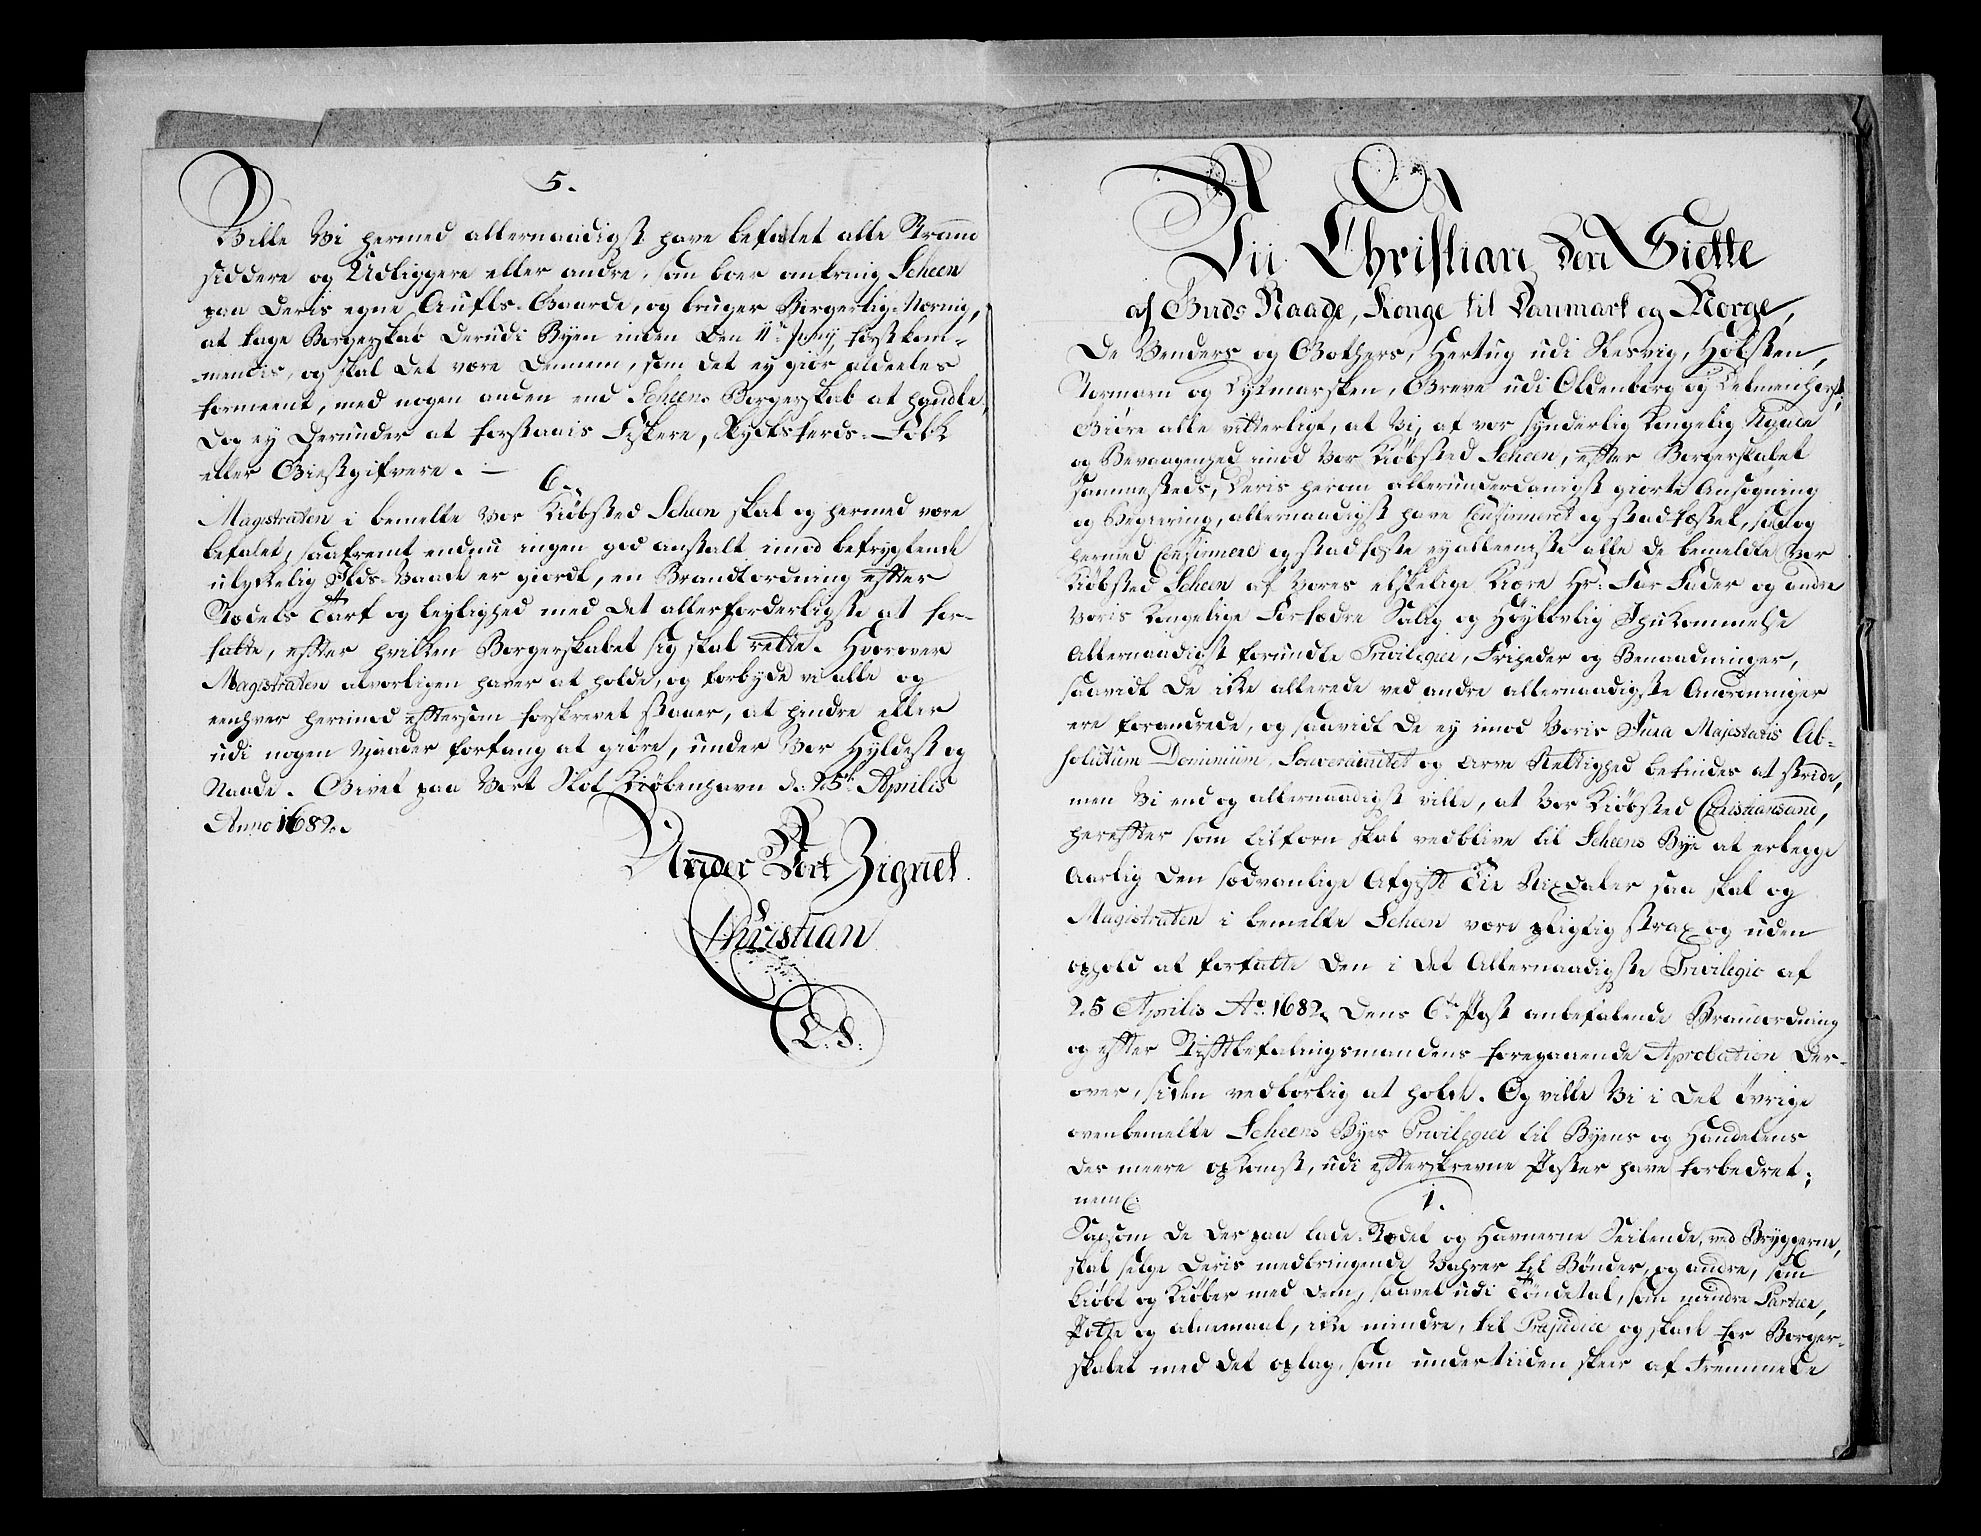 5.
Wille Wi hermed allernaadigst have befalet alle Strand
siddere og Udliggere eller andre, som boer omkring Scheen
paa deris egne Aufls-Gaarde, og bruger Borgerlig-Nering,
at tage Borgerskab derudi Byen inden den 11te Juny førstkom-
-mendis, og skal det være dennem, som det ey giør aldeeles
formeent, med nogen anden end Scheens Borgerskab at handle,
Dog ey derunder at forstaais Fiskere, Skydtsferds-Folk
eller Giestgifvere. —
6.
Magistraten i bemelte Vor Kiøbsted Scheen skal og hermed være
befalet, saafremt endnu ingen god anstalt imod befrygtende
ulykkelig Ilds-Vaade er giordt, en Brandtordning efter
Stedets Tarf og leylighed med det allerforderligste at for-
fatte, efter hvilken Borgerskabet sig skal rette. Hvorover
Magistraten alvorligen haver at holde, og forbyde vi alle og
eenhver herimod eftersom forskrevet staaer, at hindre eller
udi nogen Maader forfang at giøre, under Vor Hyldest og
Naade. Givet paa Vort Slot Kiøbenhavn d. 25t Aprilis
Anno 1682.
Under Vort Zignet.
Christian
L. S.
Vii Christian den Siette
af Guds Naade, Konge til Danmark og Norge,
De Venders og Gothers, Hertug udi Slesvig, Holsten,
Stormarn og Dytmarsken, Greve udi Oldenborg og Delmenhorst,
Giøre alle vitterligt, at Vi, af vor synderlig Kongelig Naade
og Bevaagenhed imod Vor Kiøbsted Scheen, efter Borgerskabet
sammesteds, deris herom allerunderdanigst giorte Ansøgning
og Begiering, allernaadigst have Confirmeret og stadfæstet, saa og
hermed Confirmere og stadfæste ey alleeniste alle de bemeldte Vor
Kiøbsted Scheen af Vores elskelige Kiære Hr: Far Fader og andre
Voris Kongelige Forfædre Salig og Høylovlig Ihukommelse
Allernaadigst forundte Privilegier, Friheder og Benaadninger,
saavidt de ikke allerede ved andre allernaadigste Anordninger
ere forandrede, og saavidt de ey imod Voris Jura Majestatis Ab-
solutum Dominium, Souverainitet og Arve Rettighed befindes at stride,
men Vi end og allernaadigst ville, at Vor Kiøbsted Christiansand,
herefter som tilforn skal vedblive til Scheens Bye at erlegge
Aarlig den sædvanlige Afgift Tie Rixdaler saa skal og
Magistraten i bemelte Scheen være pligtig strax og uden
ophold at forfatte den i det Allernaadigste Privilegio af
25 Aprilis Ao. 1682 dens 6te Post anbefalende Brandordning
og efter Stiftbefalingsmandens foregaaende Aprobation der-
over, siden vedbørlig at holde. Og ville Vi i det øvrige
ovenbemelte Scheens Byes Privilegier til Byens og Handelens
des meere opkomst, udi efterskrevne Poster have forbedret;
neml:
1.
Saasom de der paa lade-Stædet og Havnerne Seilende, ved Bryggerne,
skal selge deris medbringende Vahrer til Bønder, og andre, som
kiøbt og Kiøber med dem, saavel udi Tøndetal, som mindre Partier,
Potte og alnemaal, ikke mindre, til Præjudice og skade for Borger-
skabet med det oplag, som undertiiden skeer af Fremmede